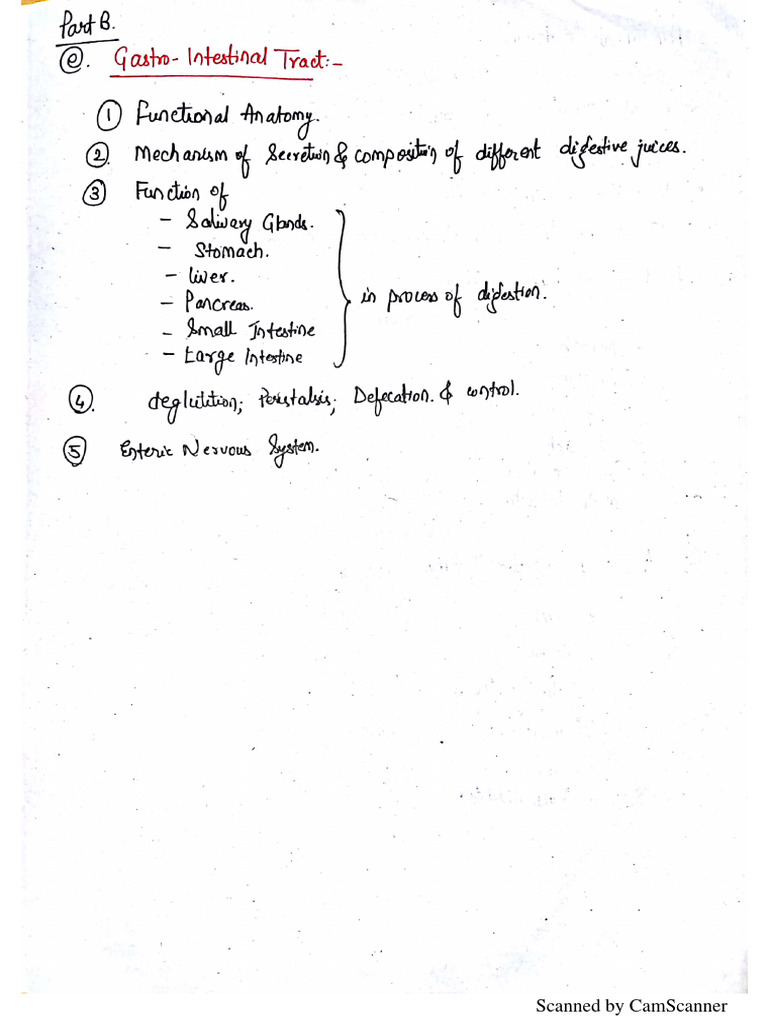 Part B.
e. Gastro-Intestinal Tract:-
1 Functional Anatomy.
2. Mechanism of Secretion & composition of different digestive juices.
3 Function of
- Salivary Glands.
- Stomach.
- Liver.
- Pancreas.
- Small Intestine
- Large Intestine
in process of digestion.
4. deglutition; Peristalsis; Defecation. & control.
5 Enteric Nervous System.
Scanned by CamScanner